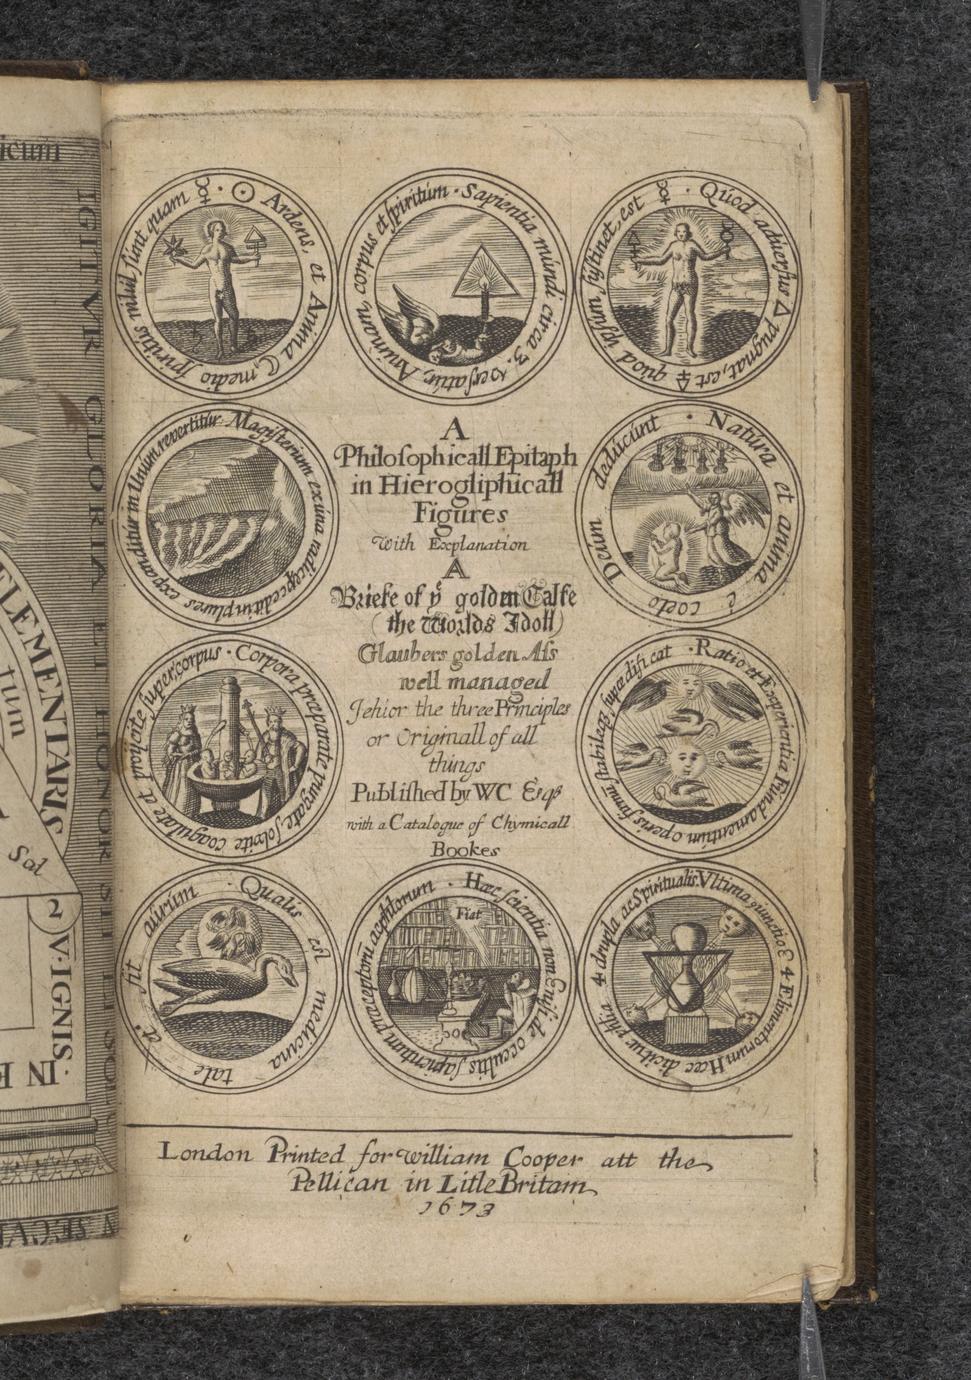 icum
IGITVR GLORIA ET HONOR SIT
ELEMENTARIS
Sal
2
V·IGNIS·
IN
☿ · ☉ Ardens, et Anima ☾, medio spiritus nihil fiont quam
Sapientia mundi circa 3. versatur, Animam, corpus et spiritum ·
☿ · Quod adversus △ pugnat, est quod ipsum sustinet, est
Magisterium ex una radice procedit in plures expanditur in Unum revertitur
Natura et anima e coelo Deum deducunt ·
Corpora præparate purgate solvite coagulate et proijcite super corpus ·
Ratio et Experientia Fundamentum operis firmu stabileq superædificat ·
Qualis est medicina tale et fit aurum ·
Hæc scientia non est nisi de occultis sapientum præceptoru ac philorum ·
Fiat
Ultima nunctio & 4 Elimentorum Hæc dicitur phia 4 drupla ac Spiritualis.
A
Philosophicall Epitaph
in Hierogliphicall
Figures
With Explanation
A
Briefe of yͤ golden Calfe
(the Worlds Idoll)
Glaubers golden Ass
well managed
Jehior the three Principles
or Originall of all
things
Published by WC Esqr
with a Catalogue of Chymicall
Bookes
London Printed for william Cooper att the
Pellican in Litle Britain
1673